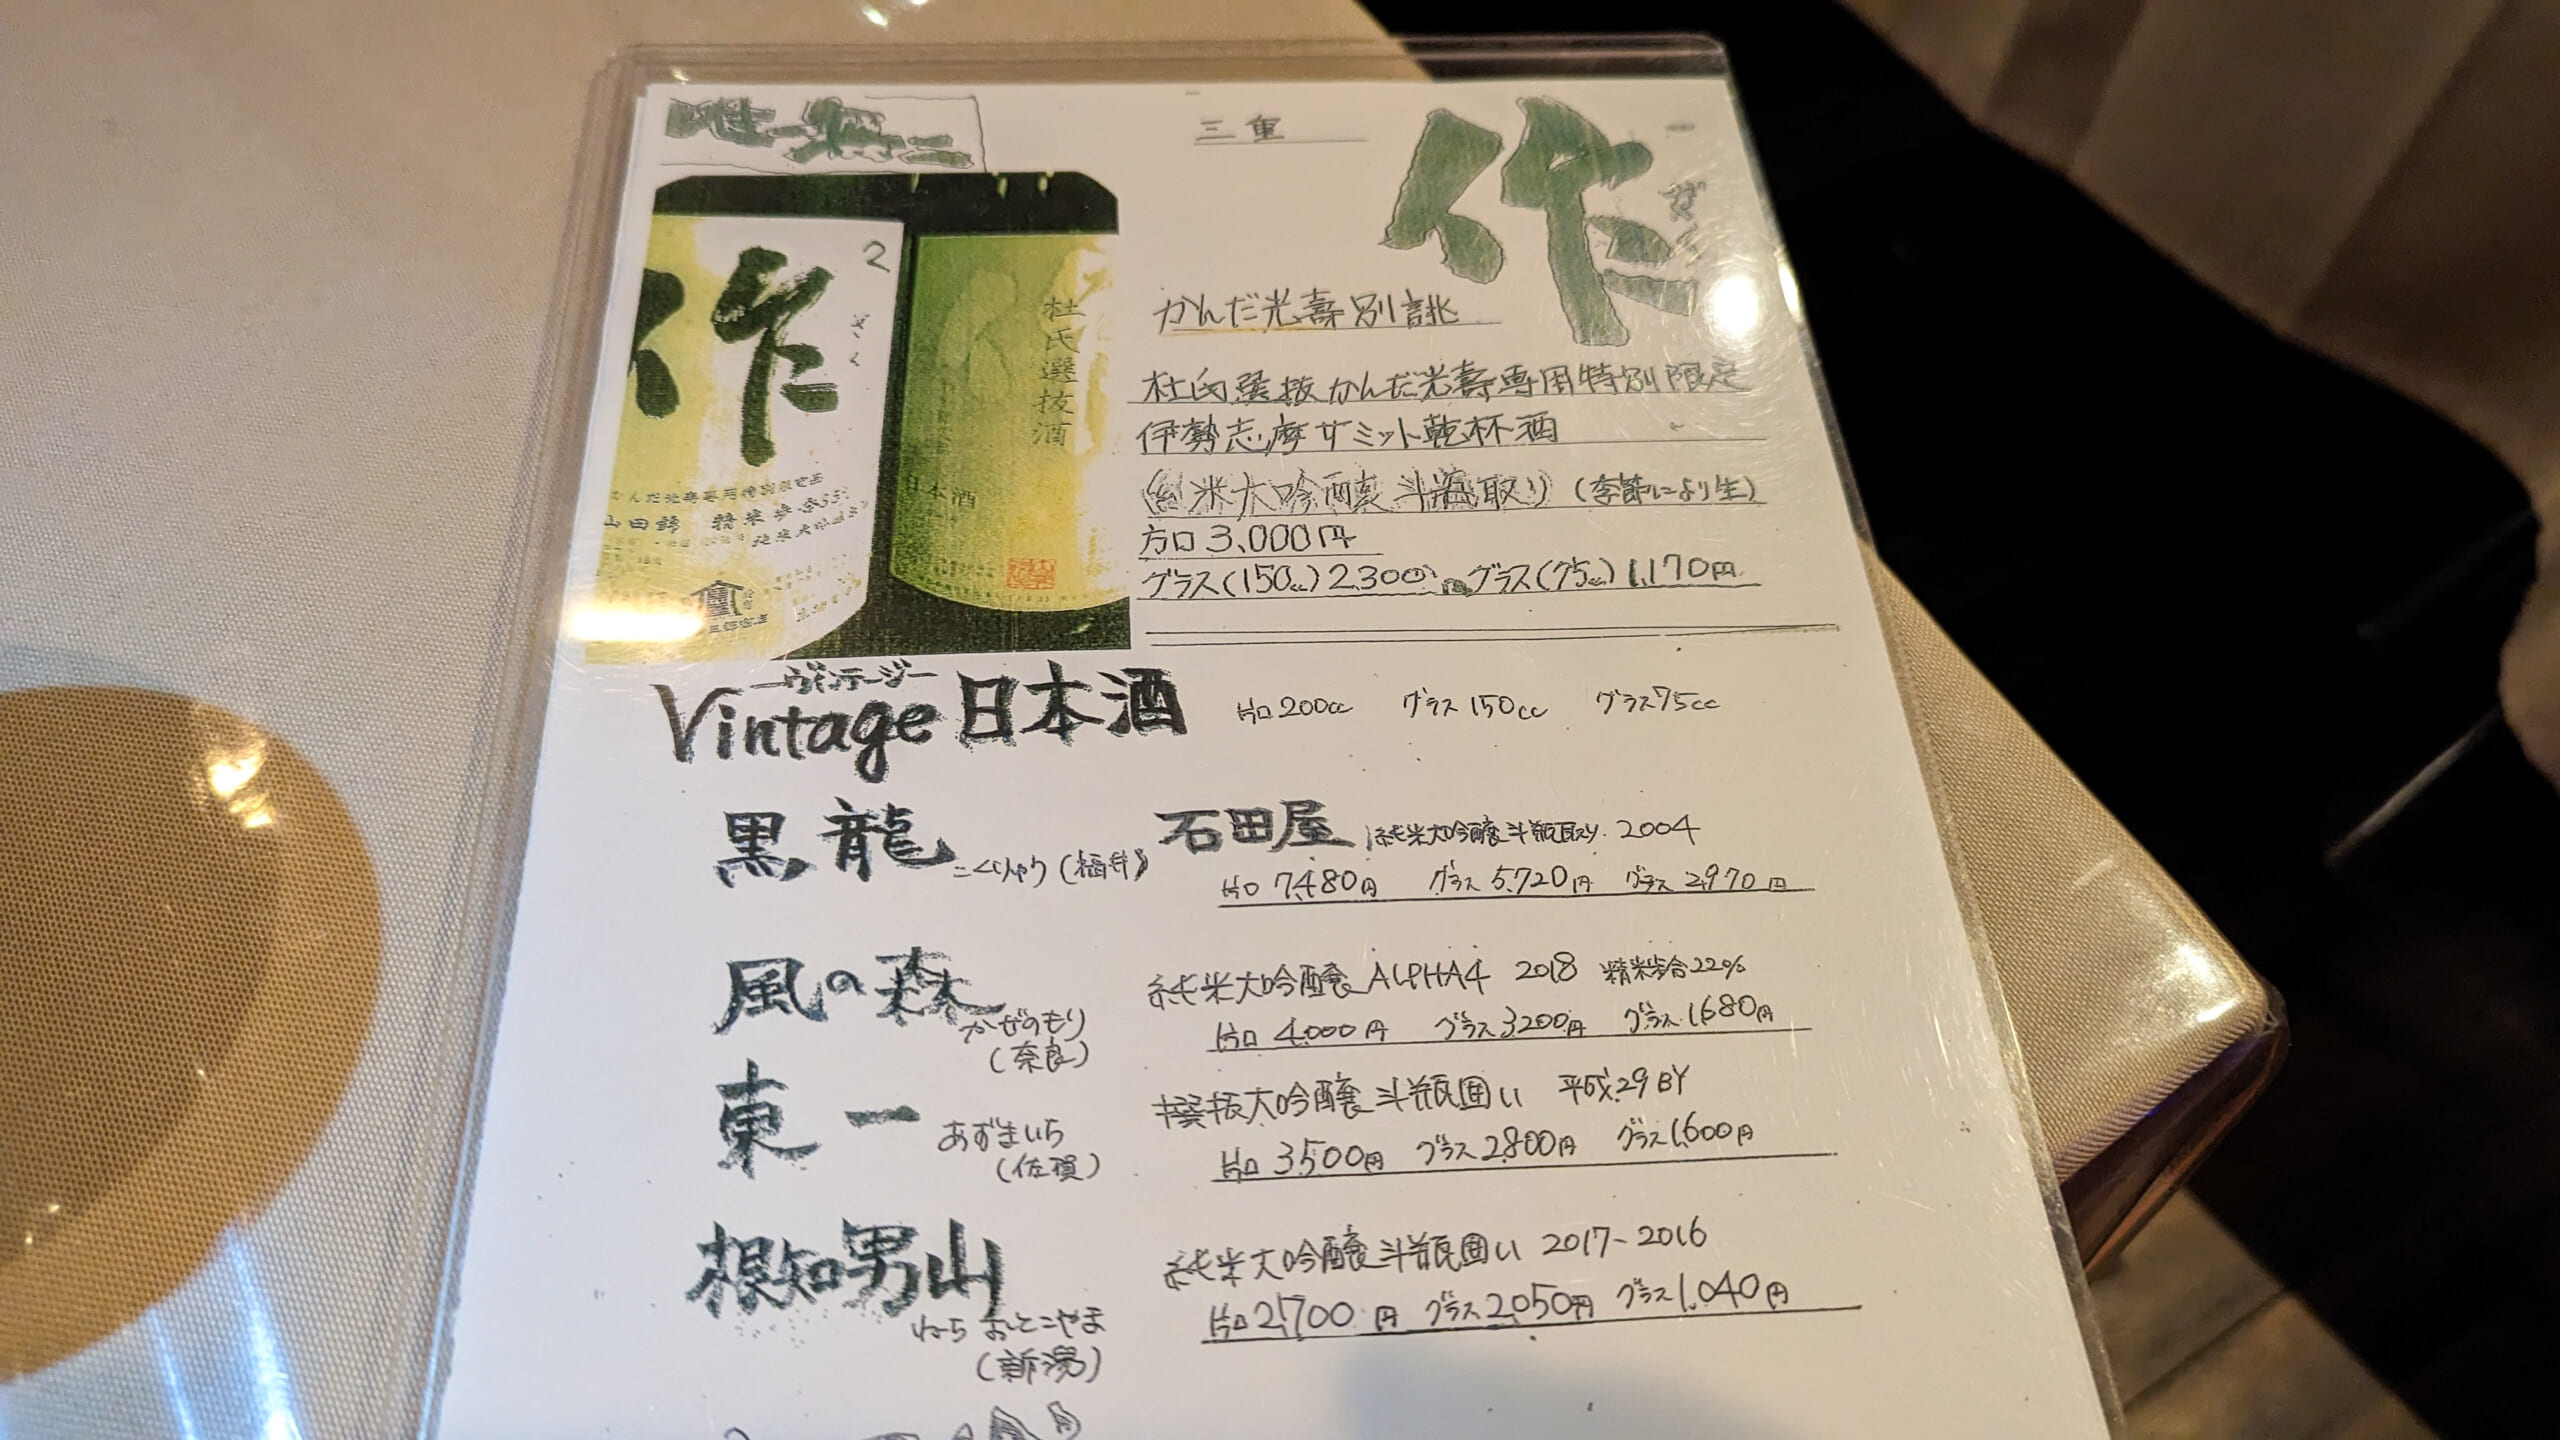 唯一無二
三重
作
ざく
作
2
ざく
かんだ光壽専用特別限定酒
山田錦 精米歩合
純米大吟醸
杜氏選抜酒
日本酒
かんだ光壽別誂
杜氏選抜かんだ光壽専用特別限定
伊勢志摩サミット乾杯酒
(純米大吟醸斗瓶取り)(季節により生)
方口3,000円
グラス(150cc)2,300円 グラス(75cc)1,170円
ヴィンテージ
Vintage日本酒 片口200cc グラス150cc グラス75cc
黒龍 こくりゅう(福井) 石田屋 純米大吟醸斗瓶取り. 2004
片口7,480円 グラス5,720円 グラス2,970円
風の森 かぜのもり
(奈良)
純米大吟醸ALPHA4 2018 精米歩合22%
片口4,000円 グラス3,200円 グラス1,680円
東一 あずまいち
(佐賀)
撰抜大吟醸斗瓶囲い 平成29BY
片口3,500円 グラス2,800円 グラス1,600円
根知男山
ねち おとこやま
(新潟)
純米大吟醸斗瓶囲い 2017-2016
片口2,700円 グラス2,050円 グラス1,040円